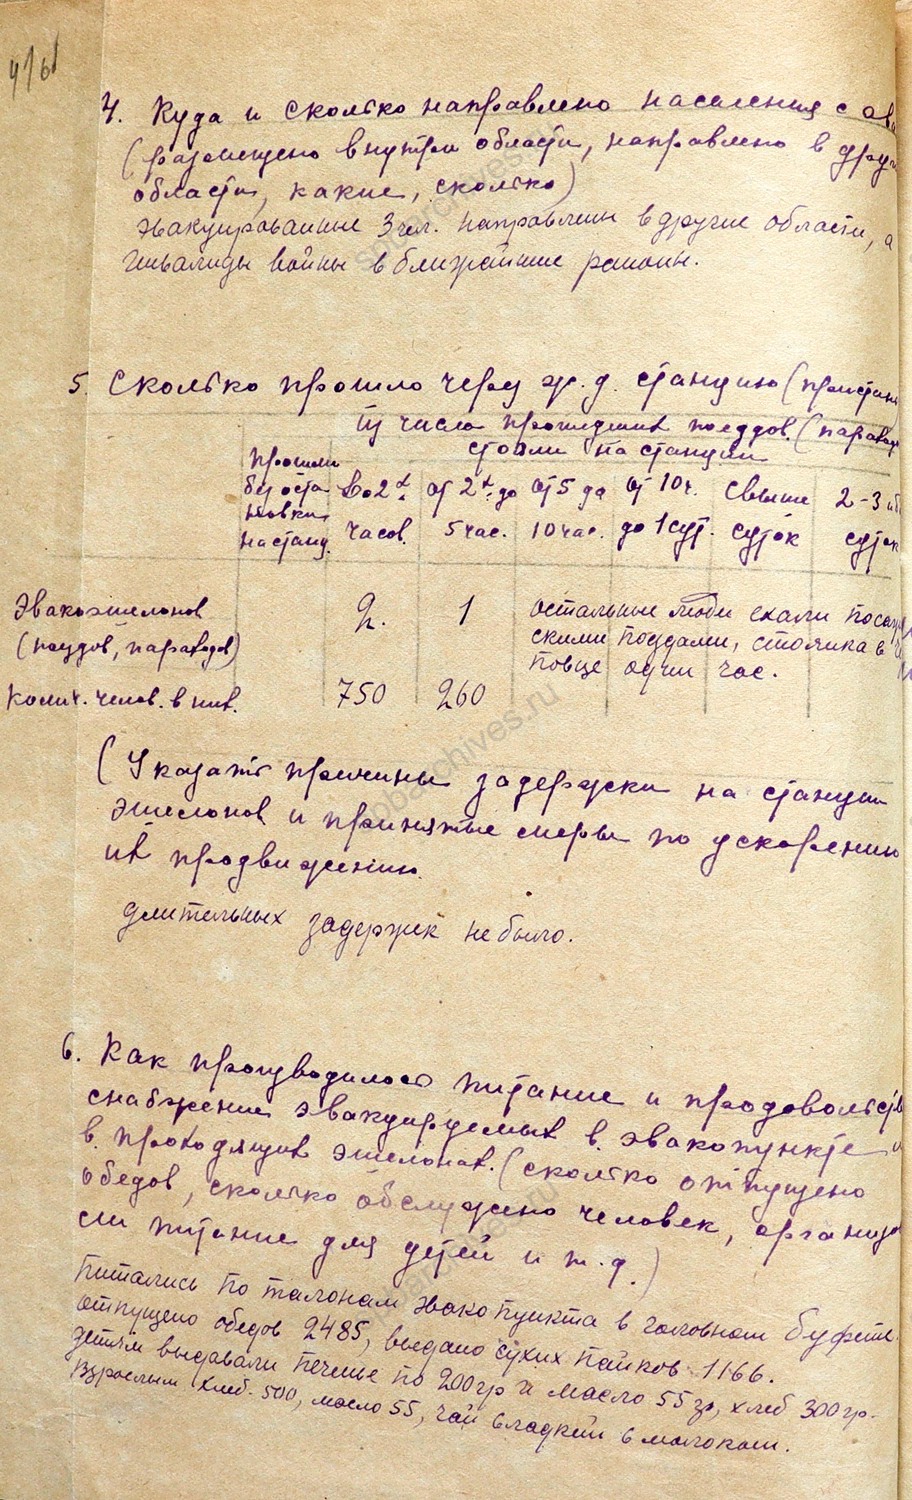 4/61
4. Куда и сколько направлено населения с эва
(размещено внутри области, направлено в дру
области, какие, сколько)
эвакуированные 3 чел. направлены в другие области, а
инвалиды войны в ближайшие районы.
5. Сколько прошло через ж.д. станцию (пристан
Из числа прошедших поездов (парахо
стояли на станции
Прошли без остановки на станц.
до 2х часов.
от 2х до 5 час.
от 5 до 10 час.
от 10 ч. до 1 сут.
свыше суток
2-3 суток
Эвакоэшелонов 2. 1 остальные люди ехали посаж
(поездов, параходов) скими поездами, стоянка в
повце один час.
Колич. челов. в них. 750 260
(Указать причины задержки на станции
эшелонов и принятые меры по ускорению
их продвижению.
длительных задержек не было.
6. Как производилось питание и продовольств
снабжение эвакуируемых в эвакопункте и
в проходящих эшелонах. (сколько отпущено
обедов, сколько обслужено человек, организо
ли питание для детей и т.д.)
питались по талонам эвакопункта в головном буфете.
отпущено обедов 2485, выдано сухих пайков 1166.
детям выдавали печенье по 200 гр и масло 55 гр, хлеб 300 гр.
взрослым хлеб-500, масло 55, чай сладкий с молоком.
spbarchives.ru